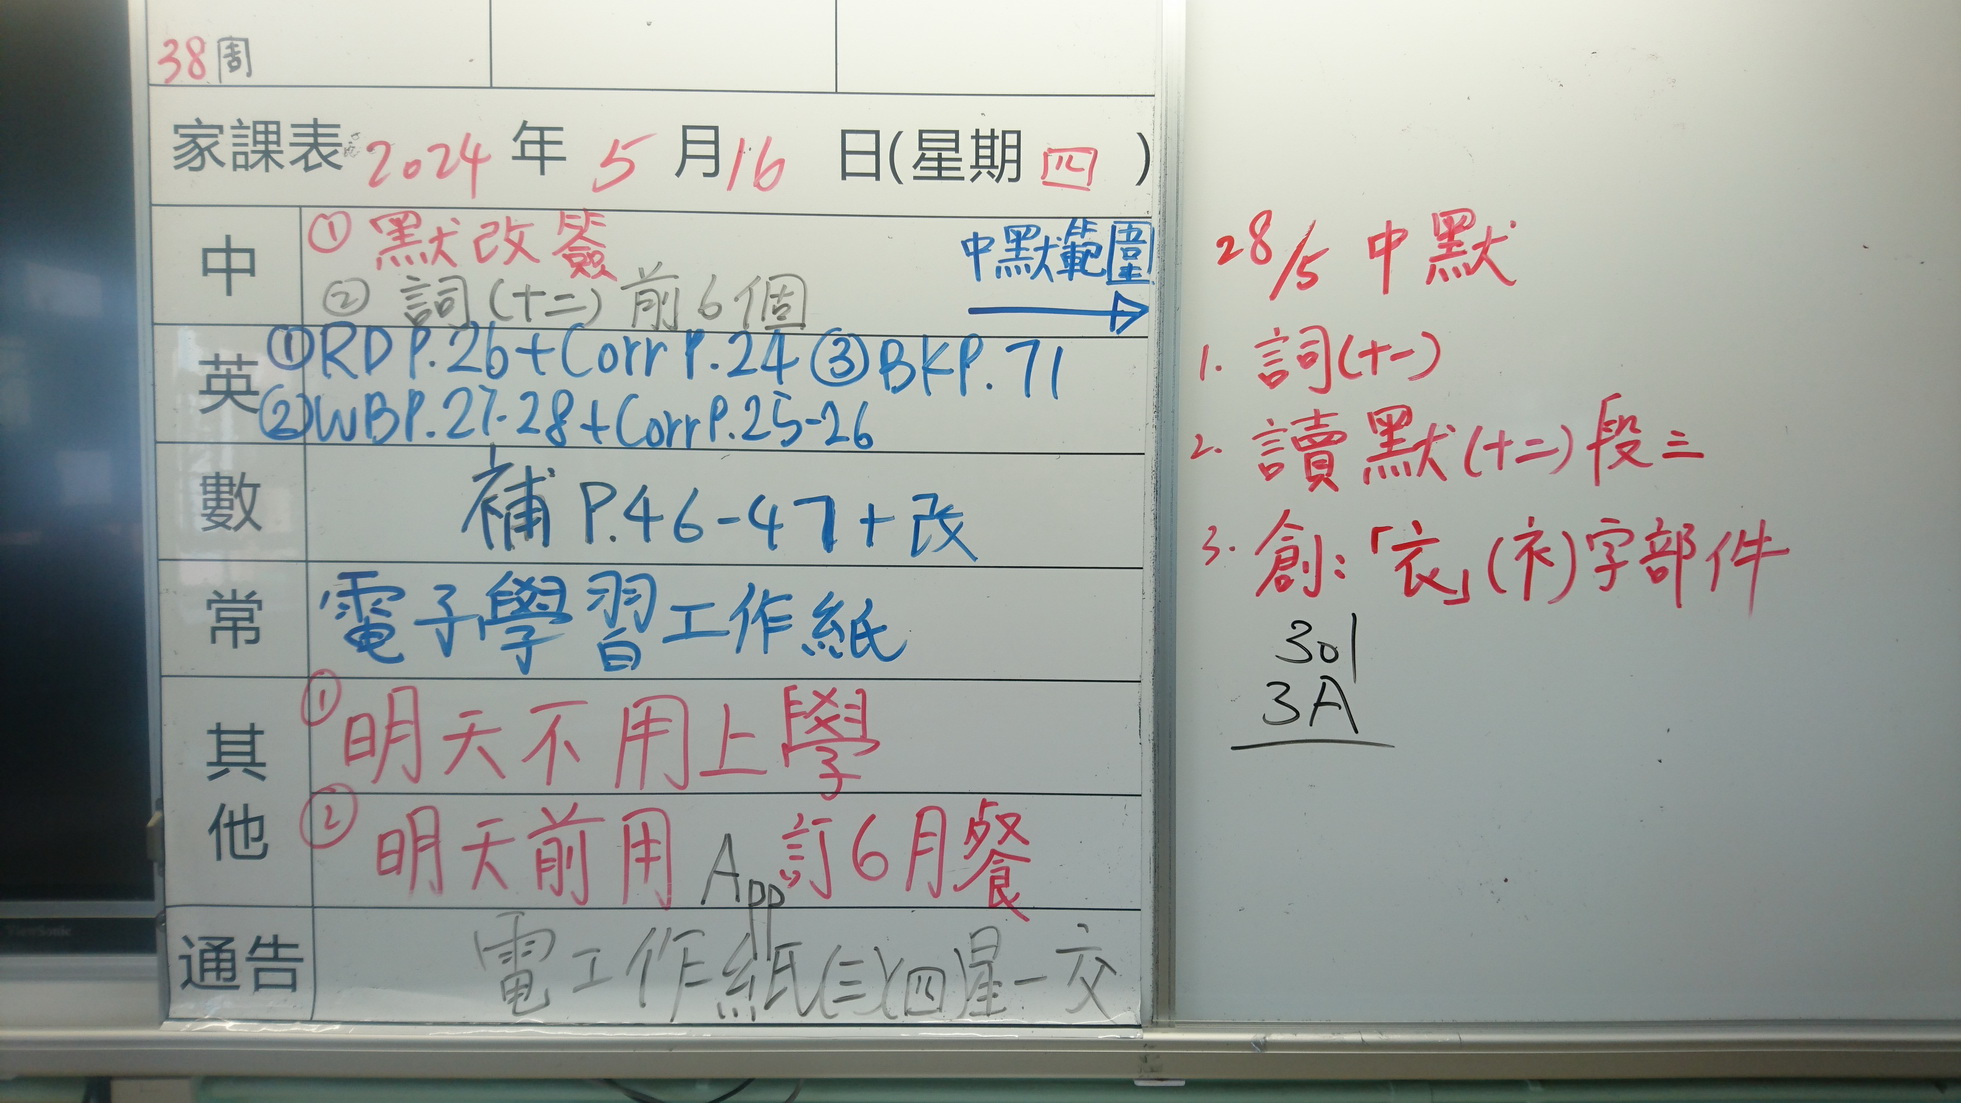 38周
家課表 2024 年 5 月 16 日(星期 四 )
中 ① 默改簽
② 詞(十二)前6個
中默範圍
英 ①RD P.26+Corr P.24 ③BK P.71
②WB P.27-28+Corr P.25-26
數 補 P.46-47+改
常 電子學習工作紙
其他 ① 明天不用上學
② 明天前用 App 訂6月餐
通告 電工作紙(三)(四)星一交
28/5 中默
1. 詞(十一)
2. 讀默(十二)段三
3. 創:「衣」(衤)字部件
301
3A
ViewSonic